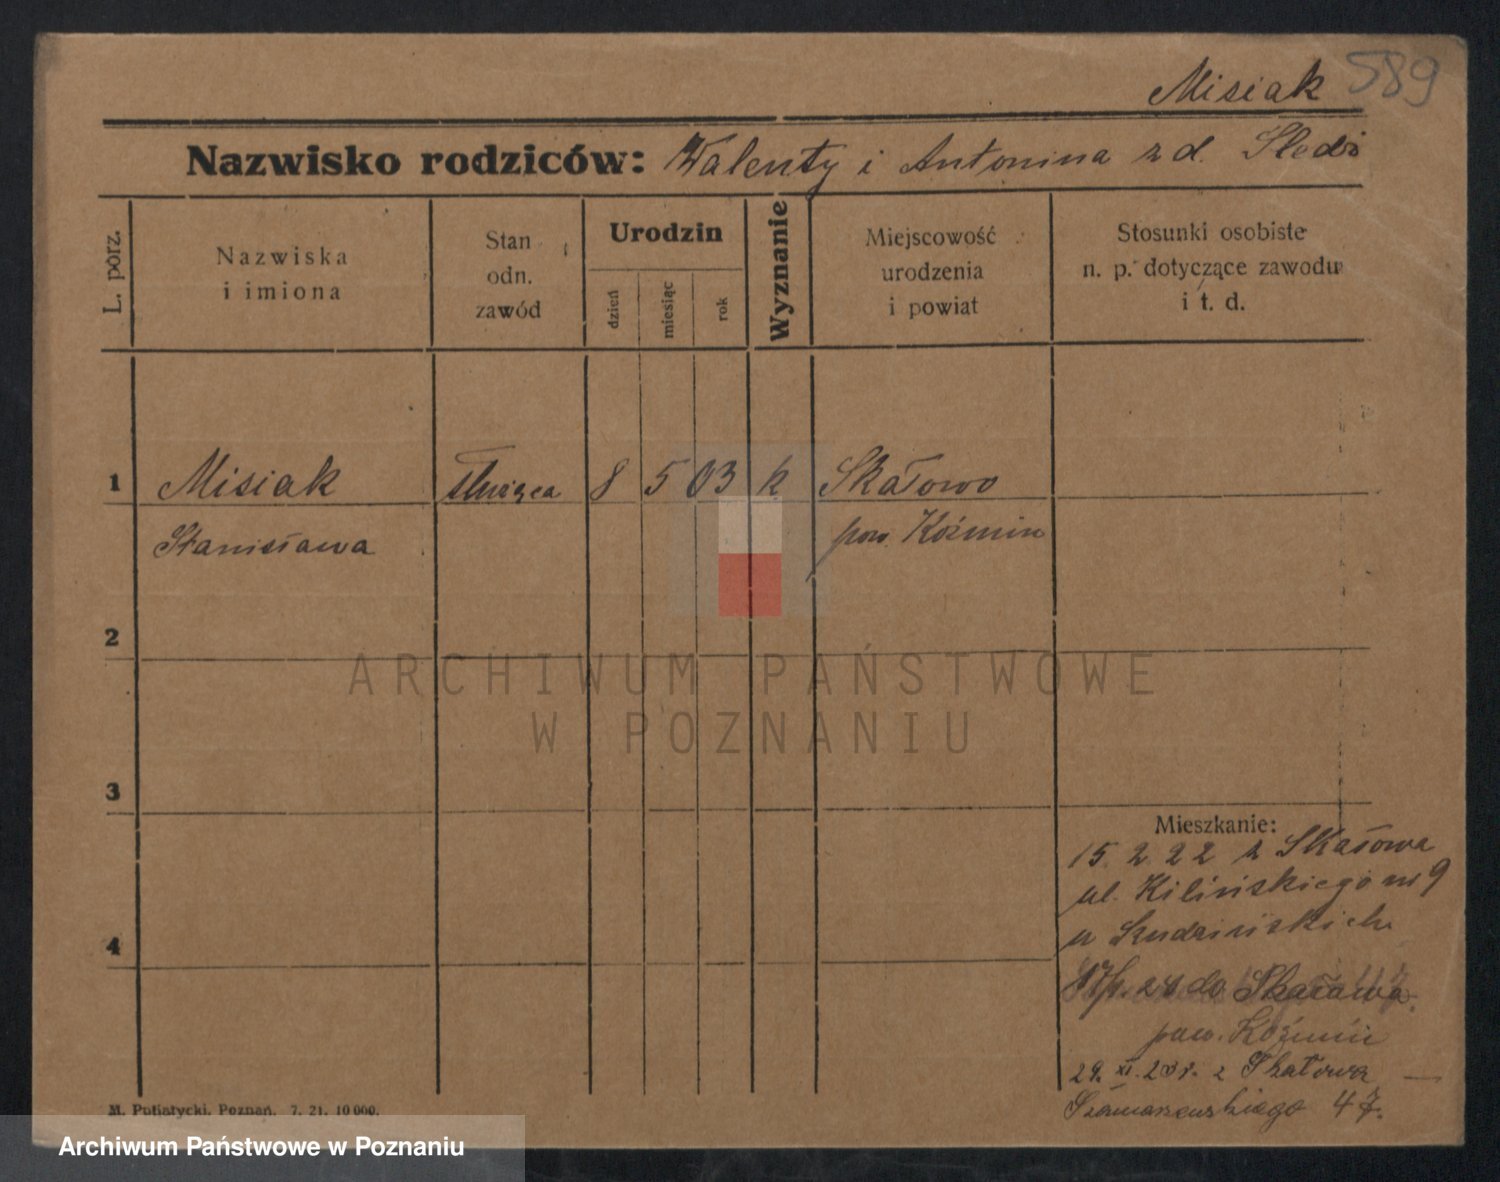 Misiak 589
Nazwisko rodziców: Walenty i Antonina z d. Śledź
L. porz.
Nazwiska
i imiona
Stan
odn.
zawód
Urodzin
dzień
miesiąc
rok
Wyznanie
Miejscowość
urodzenia
i powiat
Stosunki osobiste
n. p. dotyczące zawodu
i t. d.
1 Misiak służąca 8 5 03 k Skałowo
Stanisława pow. Koźmin
2
3
4
Mieszkanie:
15. 2. 22 z Skałowa
ul. Kilińskiego nr 9
u
do Skałowa
pow. Koźmin
29. XI. 23 r. z Skałowa
Szamarzewskiego 47.
M. Putiatycki, Poznań. 7. 21. 10 000.
ARCHIWUM PAŃSTWOWE
W POZNANIU
Archiwum Państwowe w Poznaniu